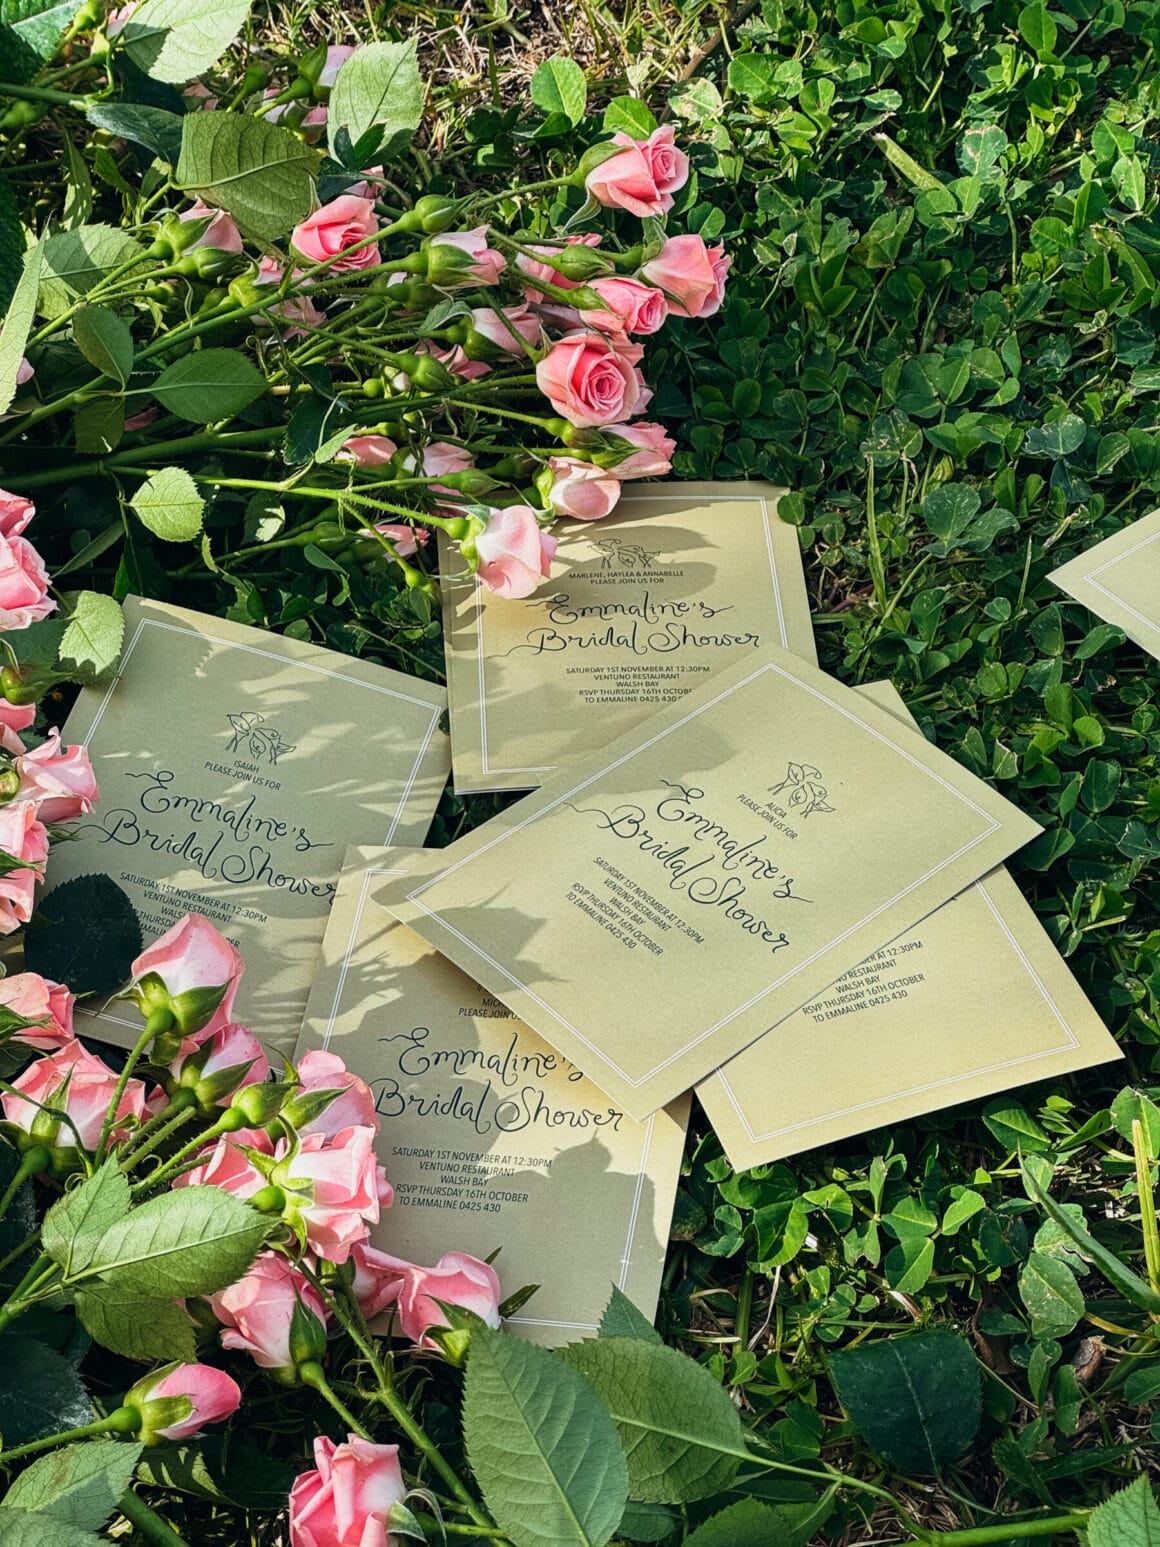 MARLENE, HAYLEA & ANNABELLE
PLEASE JOIN US FOR
Emmaline's
Bridal Shower
SATURDAY 1ST NOVEMBER AT 12:30PM
VENTUNO RESTAURANT
WALSH BAY
RSVP THURSDAY 16TH OCTOBER
TO EMMALINE 0425 430
ISAIAH
PLEASE JOIN US FOR
Emmaline's
Bridal Shower
SATURDAY 1ST NOVEMBER AT 12:30PM
VENTUNO RESTAURANT
WALSH BAY
THURSDAY 16TH OCTOBER
ALICIA
PLEASE JOIN US FOR
Emmaline's
Bridal Shower
SATURDAY 1ST NOVEMBER AT 12:30PM
VENTUNO RESTAURANT
WALSH BAY
RSVP THURSDAY 16TH OCTOBER
TO EMMALINE 0425 430
PLEASE
Emmaline's
Bridal Shower
SATURDAY 1ST NOVEMBER AT 12:30PM
VENTUNO RESTAURANT
WALSH BAY
RSVP THURSDAY 16TH OCTOBER
TO EMMALINE 0425 430
AT 12:30PM
RESTAURANT
WALSH BAY
RSVP THURSDAY 16TH OCTOBER
TO EMMALINE 0425 430